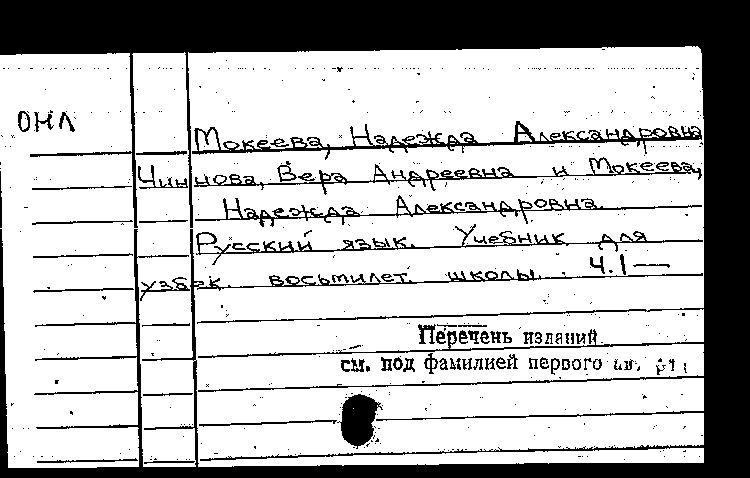 ОНЛ
Мокеева, Надежда Александровна
Чиннова, Вера Андреевна и Мокеева,
Надежда Александровна.
Русский язык. Учебник для
узбек. восьмилет. школы. Ч.1—
Перечень изданий
см. под фамилией первого